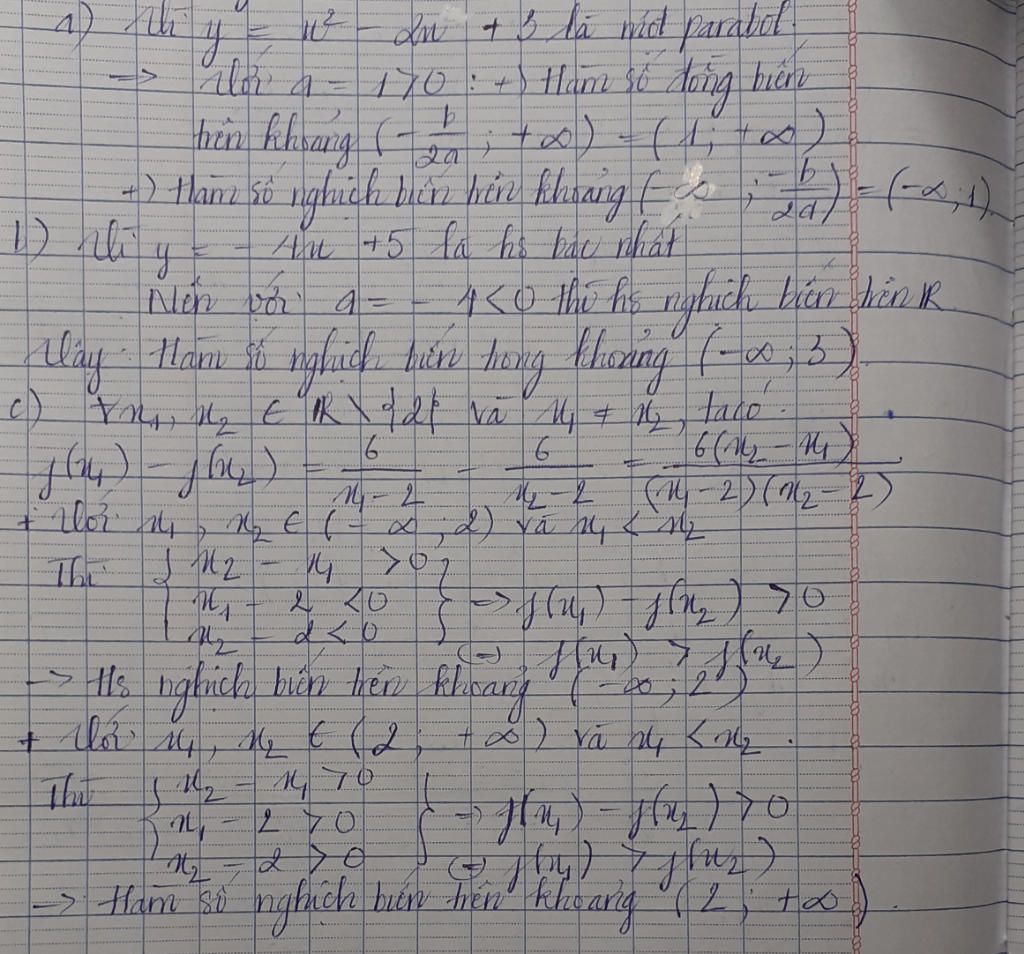 a) Vì y = x² - 2x + 3 là một parabol.
=> Với a = 1 > 0 : +) Hàm số đồng biến
trên khoảng (-b/2a ; +∞) = (1 ; +∞)
+) Hàm số nghịch biến trên khoảng (-∞ ; -b/2a) = (-∞ ; 1)
b) Vì y = - 4x + 5 là hs bậc nhất
Nên với a = - 4 < 0 thì hs nghịch biến trên R
Vậy Hàm số nghịch biến trong khoảng (-∞ ; 3).
c) ∀x₁, x₂ ∈ R \ {2} và x₁ ≠ x₂, ta có:
f(x₁) - f(x₂) = 6/(x₁ - 2) - 6/(x₂ - 2) = 6(x₂ - x₁)/(x₁ - 2)(x₂ - 2)
+ Với x₁, x₂ ∈ (-∞ ; 2) và x₁ < x₂
Thì { x₂ - x₁ > 0
x₁ - 2 < 0 } => f(x₁) - f(x₂) > 0
x₂ - 2 < 0
(=) f(x₁) > f(x₂)
-> Hs nghịch biến trên khoảng (-∞ ; 2)
+ Với x₁, x₂ ∈ (2 ; +∞) và x₁ < x₂.
Thì { x₂ - x₁ > 0
x₁ - 2 > 0 } => f(x₁) - f(x₂) > 0
x₂ - 2 > 0 (=) f(x₁) > f(x₂)
-> Hàm số nghịch biến trên khoảng (2 ; +∞).